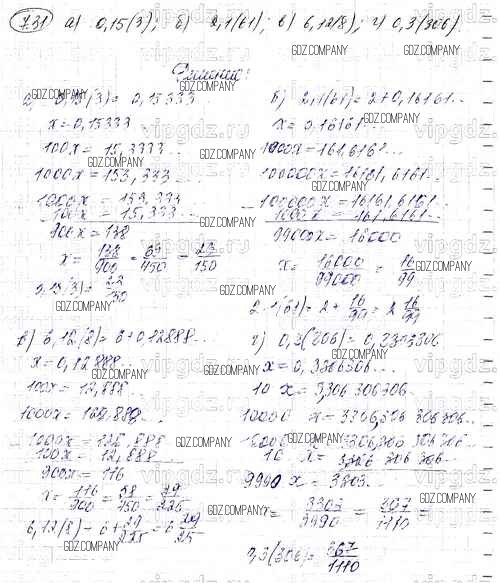 7.31 а) 0,15(3); б) 2,1(61); в) 6,12(8); г) 0,3(306).
Решение:
а) 0,15(3) = 0,15333..
x = 0,15333
100x = 15,333...
1000x = 153,333
1000x = 153,333
100x = 15,333...
900x = 138
x = 138/900 = 69/450 = 23/150
б) 2,1(61) = 2 + 0,16161..
x = 0,16161..
1000x = 161,6161..
100000x = 16161,6161..
- 100000x = 16161,6161..
1000x = 161,6161..
99000x = 16000
x = 16000/99000 = 16/99
2.1(61) = 2 + 16/99 = 2 16/99
в) 6,12(8) = 6 + 0,12888...
x = 0,12888...
100x = 12,888
1000x = 128,888
1000x = 128,888
100x = 12,888
900x = 116
x = 116/900 = 58/450 = 29/225
г) 0,3(306) = 0,3306306
x = 0,3306306...
10 x = 3,306 306 306..
10000 x = 3306,306 306 306...
10000 x = 3306,306 306 306..
10 x = 3,306 306 306..
9990 x = 3303..
x = 3303/9990 = 367/1110 =
0,3(306) = 367/1110
GDZ.COMPANY
vipgdz.ru